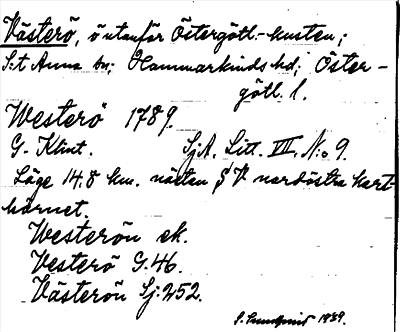 Västerö, ö utanför Östergötl.-kusten;
S:t Anna sn; Hammarkinds hd; Öster-
götl. l.
Westerö 1789.
G. Klint. Sj.A. Litt. VII. N:o 9.
Läge 14.8 km. nästan § V nordöstra kart-
hörnet.
Westerön ek.
Vesterö G. 46.
Västerön Sj. 252.
S. Lundquist 1939.